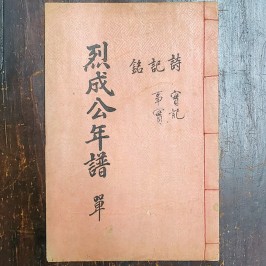 詩 記 銘
實記
事實
烈成公年譜 單